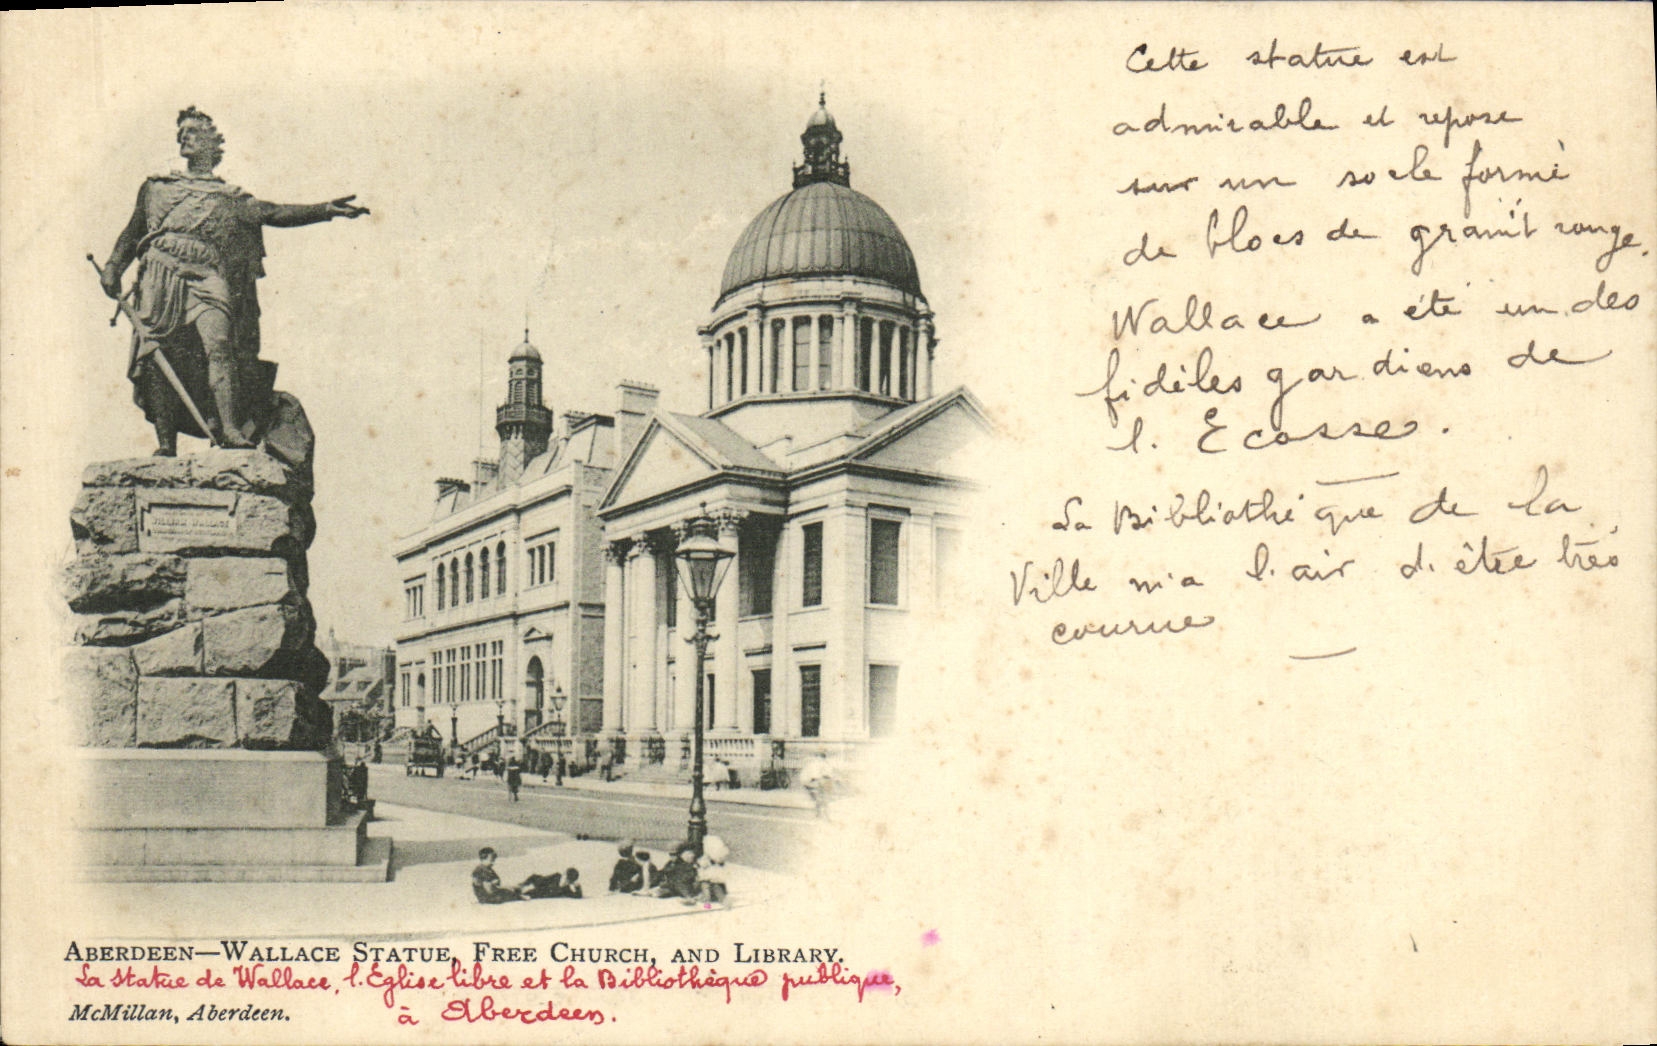 Cette statue est
admirable et repose
sur un socle formé
de blocs de granit rouge.
Wallace a été un des
fidèles gardiens de
l'Ecosse.
La Bibliothèque de la
Ville m'a l'air d'être très
courue
WILLIAM WALLACE
ABERDEEN—WALLACE STATUE, FREE CHURCH, AND LIBRARY.
La statue de Wallace, l'Eglise libre et la Bibliothèque publique,
McMillan, Aberdeen.
à Aberdeen.